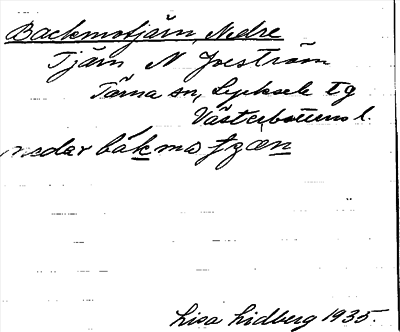 Backmotjärn, Nedre
Tjärn N Joeström
Tärna sn, Lycksele tg
Västerbottens l.
nedar båkmo tjæn
Lisa Lidberg 1935.